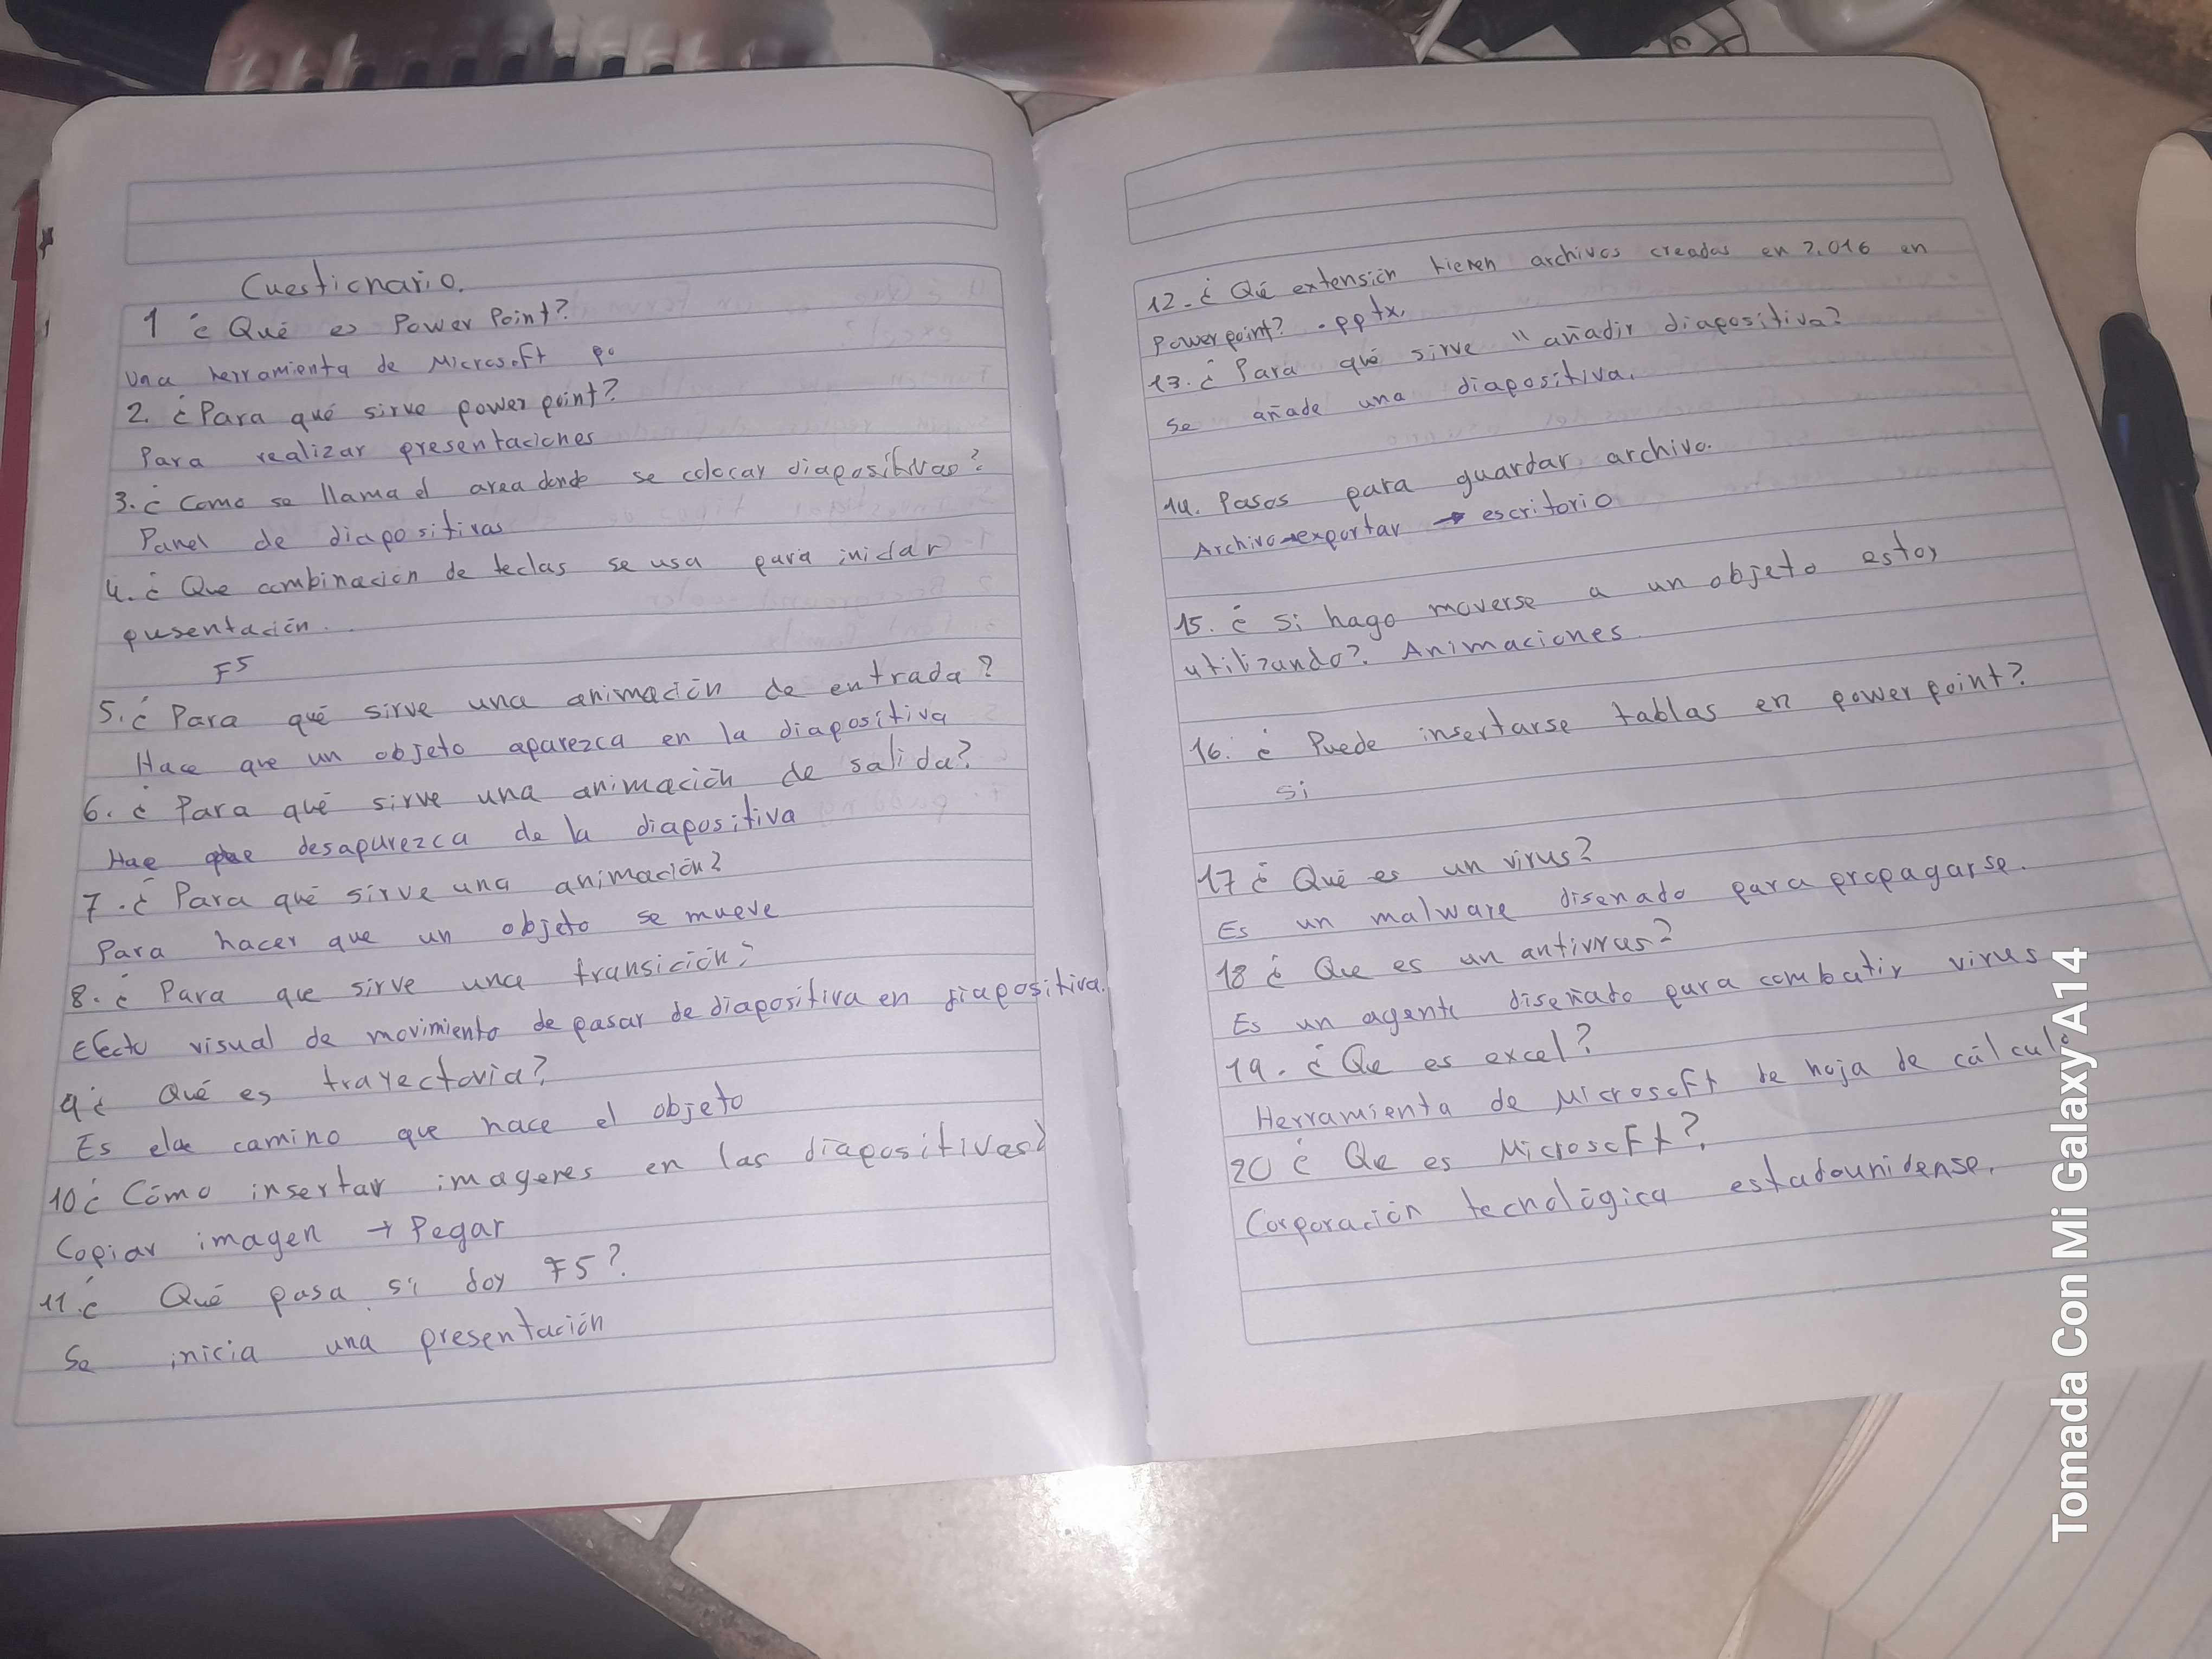 Cuestionario.
1 ¿ Qué es Power Point?
Una herramienta de Microsoft po
2. ¿ Para qué sirve power point?
Para realizar presentaciones
3. ¿ Como se llama el area donde se colocar diapositivas?
Panel de diapositivas
4. ¿ Que combinación de teclas se usa para iniciar
presentación.
F5
5. ¿ Para qué sirve una animación de entrada?
Hace que un objeto aparezca en la diapositiva
6. ¿ Para qué sirve una animación de salida?
Hae que desaparezca de la diapositiva
7. ¿ Para qué sirve una animación?
Para hacer que un objeto se mueve
8. ¿ Para que sirve una transición?
Efecto visual de movimiento de pasar de diapositiva en diapositiva.
9 ¿ Qué es trayectoria?
Es el camino que hace el objeto
10 ¿ Cómo insertar imagenes en las diapositivas?
Copiar imagen → Pegar
11. ¿ Qué pasa si doy F5?
Se inicia una presentación
12. ¿ Qué extensión tienen archivos creados en 2.016 en
Powerpoint? .pptx.
13. ¿ Para qué sirve " añadir diapositiva?
Se añade una diapositiva.
14. Pasos para guardar archivo.
Archivo→exportar → escritorio
15. ¿ Si hago moverse a un objeto estoy
utilizando? Animaciones
16. ¿ Puede insertarse tablas en power point?
si
17 ¿ Qué es un virus?
Es un malware disenado para propagarse.
18 ¿ Que es un antivirus?
Es un agente diseñado para combatir virus
19. ¿ Qe es excel?
Herramienta de Microsoft de hoja de cálculo
20 ¿ Qe es Microsoft?
Corporación tecnológica estadounidense.
Tomada Con Mi Galaxy A14